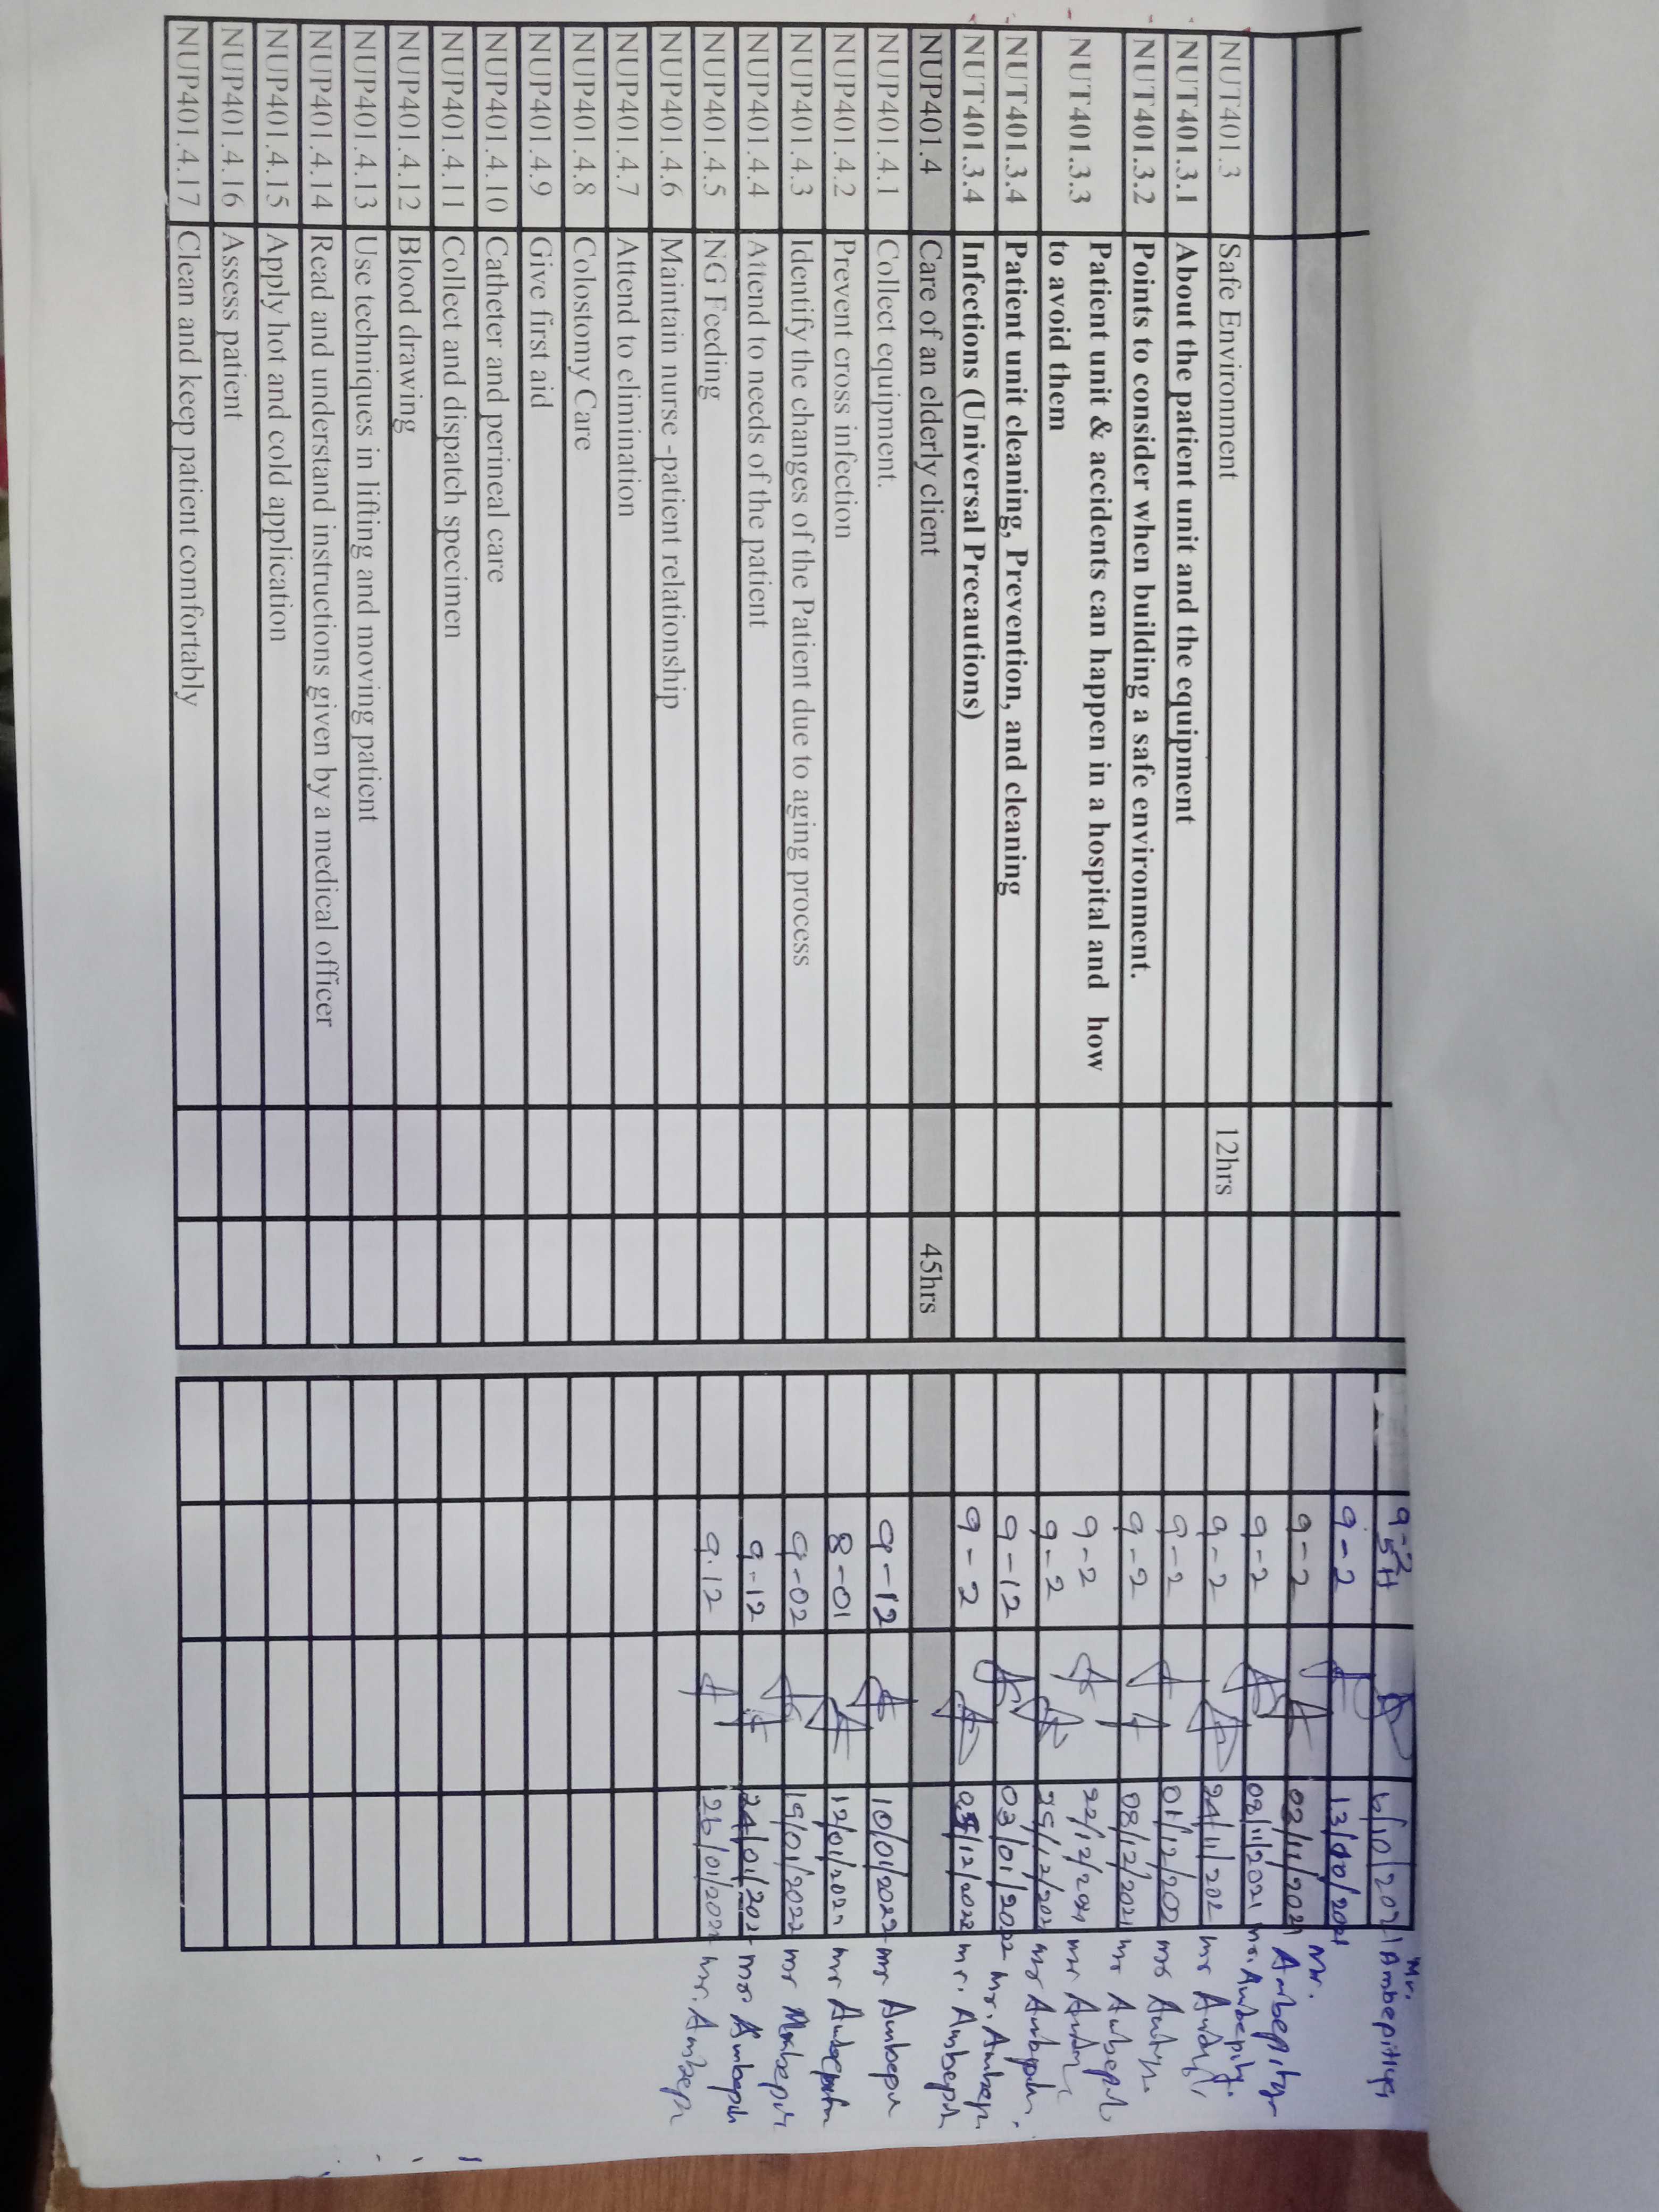 9-2 5H 6/10/2021 Mr. Ambepitiya
9-2 13/10/2021 Mr.
9-2 02/11/2021 Ambepitiya
9-2 02/11/2021 Mr. Ambepity.
NUT401.3 Safe Environment 12hrs 9-2 24/11/202 Mr
NUT401.3.1 About the patient unit and the equipment 9-2 01/12/202 Mr
NUT401.3.2 Points to consider when building a safe environment. 9-2 08/12/2021 Mr Ambepit
NUT401.3.3 Patient unit & accidents can happen in a hospital and how 9-2 22/12/2021 Mr
to avoid them 9-2 29/12/202 Mr
NUT401.3.4 Patient unit cleaning, Prevention, and cleaning 9-12 03/01/2022 Mr. Ambepi
NUT401.3.4 Infections (Universal Precautions) 9-2 /12/2022 Mr. Ambepit
NUP401.4 Care of an elderly client 45hrs
NUP401.4.1 Collect equipment. 9-12 10/01/2022 Mr Ambepi
NUP401.4.2 Prevent cross infection 8-01 12/01/202 Mr
NUP401.4.3 Identify the changes of the Patient due to aging process 9-02 19/01/2022 Mr
NUP401.4.4 Attend to needs of the patient 9-12 24/01/202 Mr Ambepit
NUP401.4.5 NG Feeding 9.12 26/01/202 Mr. Ambepi
NUP401.4.6 Maintain nurse -patient relationship
NUP401.4.7 Attend to elimination
NUP401.4.8 Colostomy Care
NUP401.4.9 Give first aid
NUP401.4.10 Catheter and perineal care
NUP401.4.11 Collect and dispatch specimen
NUP401.4.12 Blood drawing
NUP401.4.13 Use techniques in lifting and moving patient
NUP401.4.14 Read and understand instructions given by a medical officer
NUP401.4.15 Apply hot and cold application
NUP401.4.16 Assess patient
NUP401.4.17 Clean and keep patient comfortably